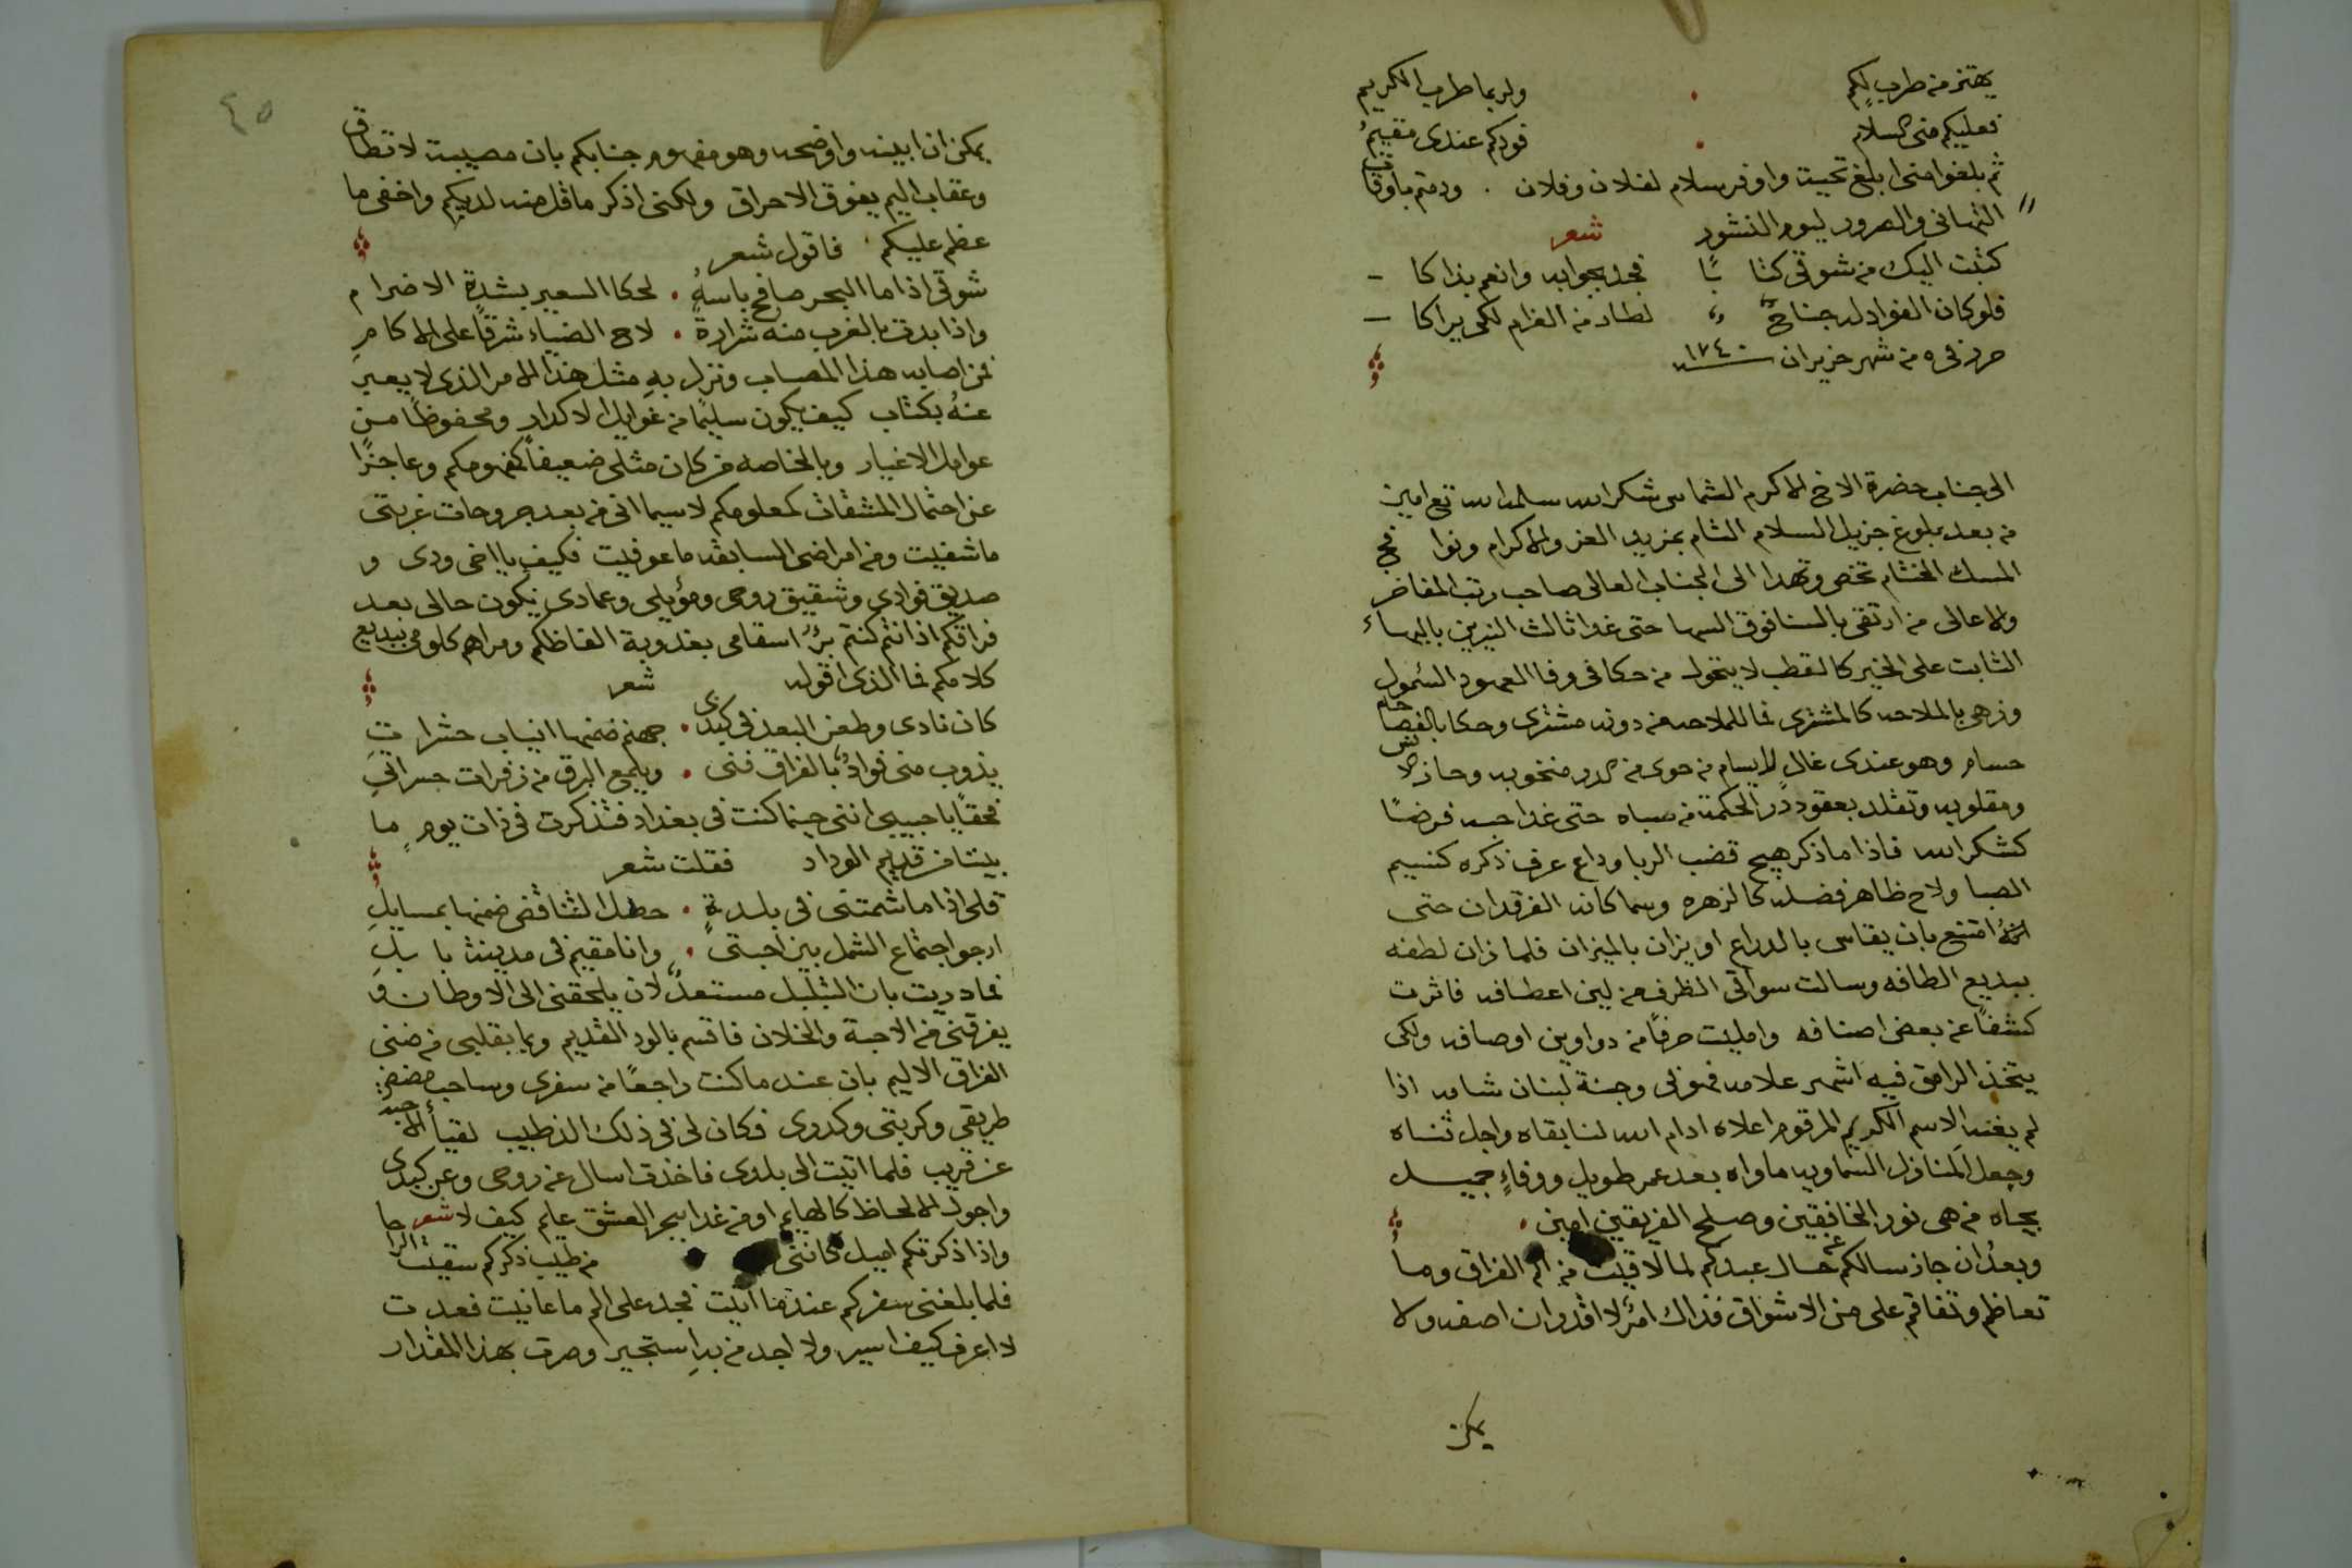 يهتز من طرب لكم • ولربما طرب الكريم
فعليكم منى السلام • فودكم عندى مقيمُ
ثم بلغوا منى ابلغ تحية واوفر سلام لفلان وفلان . ودمتم باوقات
التهانى والسرور ليوم النشور شعر
كتبت اليك من شوقى كتا بًا فجد بجوابه وانعم بذاكا -
فلو كان الفواد له جناحٌ لطار من الغرام لكى يراكا -
حرر فى ٥ من شهر حزيران سنة ١٧٤٠
الى جناب حضرة الاخ الاكرم الشماس شكرالله سلمه الله تع امين
من بعد بلوغ جزيل السلام التام بمزيد العز والاكرام ونوا فج
المسك الختام تخص وتهدا الى الجناب العالى صاحب رتب المفاخر
والاعالى من ارتقى بالسنا فوق السها حتى غدا ثالث النيرين بالبهاء
الثابت على الخير كالقطب لا يتحول من حكا فى وفا العهود السمول
وزهى بالملاحه كالمشترى فما للملاحه من دونه مشترى وحكا بالفصاحه
حسام وهو عندى غالٍ لا يسام من حوى من الدر منخوبه وحاز
ومقلوبه وتقلد بعقود دُر الحكمة من صباه حتى غدا حبه فرضًا
كشكرالله فاذا ما ذكر هيج قضب الربا وداع عرف ذكره كنسيم
الصبا ولاح ظاهر فضله كالزهره وسما كانه الفرقدان حتى
انهُ امتنع بان يقاس بالدراع او يزان بالميزان فلما زان لطفه
ببديع الطافه وسالت سواقى الظرف من لين اعطافه فاثرت
كشفًا عن بعض اصنافه وامليت حرفًا من دواوين اوصافه ولكى
يتخذ الرامق فيه اشهر علامه فهو فى وجنة لبنان شامه اذا
لم يغنه الاسم الكريم المرقوم اعلاه ادام الله لنا بقاه واجل ثناه
وجعل المنازل السماويه ماواه بعد عمر طويل ووفاءٍ جميل
بجاه من هى نور الخافقين وصلح الفريقين امين •
وبعدُ ان جاز سالكم عن حال عبدكم لما لاقيت من الم الفراق وما
تعاظم وتفاقم على من الاشواق فذاك امرٌ لا اقدر ان اصفه ولا
يمكن
٤٥
يمكن ان ابينه واوضحه وهو مفهوم جنابكم بان مصيبة لا تطاق
وعقاب اليم يفوق الاحراق ولكنى اذكر ما قل منه لديكم واخفى ما
عظم عليكم فاقول شعر
شوقى اذا ما البحر صافح باسهُ • لحكا السعير بشدةِ الاضرام
واذا بدت بالغرب منه شرارةٌ • لاح الضياء شرقًا على الاكامِ
فمن اصابه هذا المصاب ونزل بهِ مثل هذا الامر الذى لا يعبر
عنهُ بكتاب كيف يكون سليمًا من غوايل الاكدار ومحفوظًا من
عوامل الاغيار وبالخاصه من كان مثلى ضعيفًا كمفهومكم وعاجزًا
عن احتمال المشقات كمعلومكم لا سيما انى من بعد جروحات غربتى
ما شفيت ومن امراضى السابقه ما عوفيت فكيف يا اخى ودى و
صديق فوادى وشقيق روحى ومؤيلى وعمادى يكون حالى بعد
فراقكم اذ انتم كنتم برُ اسقامى بعذوبة الفاظكم ومراهم كلومى ببديع
كلامكم فما الذى اقوله شعر
كان نادى وطعن البعد فى كبدى • جهنم ضمنها انياب حشرات
يذوب منى فوادٌ بالفراق فنى • ويلمع البرق من زفرات حسراتى
فحقًا يا حبيبى اننى حينما كنت فى بغداد فتذكرت فى ذات يومٍ ما
بيننا من قديم الوداد فقلت شعر
قلى اذا ما شمتنى فى بلدةٍ • حصل التناقض ضمنها بمسايلِ
ارجو اجتماع الشمل بين احبتى • وانا مقيم فى مدينة با بلِ
فما دريت بان التبلبل مستعدٌ لان يلحقنى الى الاوطان و
يفرقنى من الاحبة والخلان فاقسم بالود القديم وبما بقلبى من ضنى
الفراق الاليم بان عند ما كنت راجعًا من سفرى وصاحب مضض
طريقى وكربتى وكدرى فكان لى فى ذلك الذ طبيب لقيا الاحبه
عن قريب فلما اتيت الى بلدى فاخذت اسال عن روحى وعن كبدى
واجول الالحاظ كالهايم او من غدا ببحر العشق عايم كيف لا شعر
واذا ذكرتكم اميل كانني من طيب ذكركم سقيت الراحا
فلما بلغنى سفركم عندما اتيت فجد على الم ما عانيت فعدت
لا اعرف كيف اسير ولا اجد من بهِ استجير وصرت بهذا المقدار